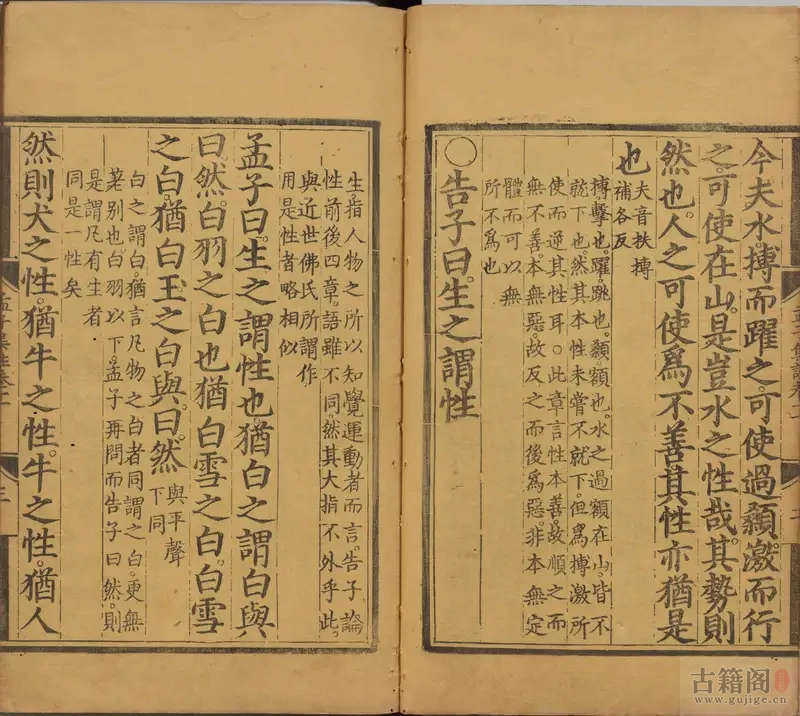 今夫水。搏而躍之。可使過顙。激而行
之。可使在山。是豈水之性哉。其勢則
然也。人之可使爲不善。其性亦猶是
也
夫音扶搏
補各反
搏。擊也。躍。跳也。顙。額也。水之過額在山。皆不
就下也。然其本性未嘗不就下。但爲搏激所
使而逆其性耳。○此章言性本善。故順之而
無不善。本無惡。故反之而後爲惡。非本無定
體而可以無
所不爲也
○告子曰。生之謂性
生。指人物之所以知覺運動者而言。告子論
性前後四章。語雖不同。然其大指不外乎此。
與近世佛氏所謂作
用是性者略相似
孟子曰。生之謂性也猶白之謂白與
曰。然。白羽之白也猶白雪之白。白雪
之白。猶白玉之白與。曰。然
與平聲
下同
白之謂白。猶言凡物之白者同謂之白。更無
差別也。白羽以下。孟子再問而告子曰然。則
是謂凡有生者
同是一性矣
然則犬之性。猶牛之性。牛之性。猶人
三
古籍阁
www.gujige.cn